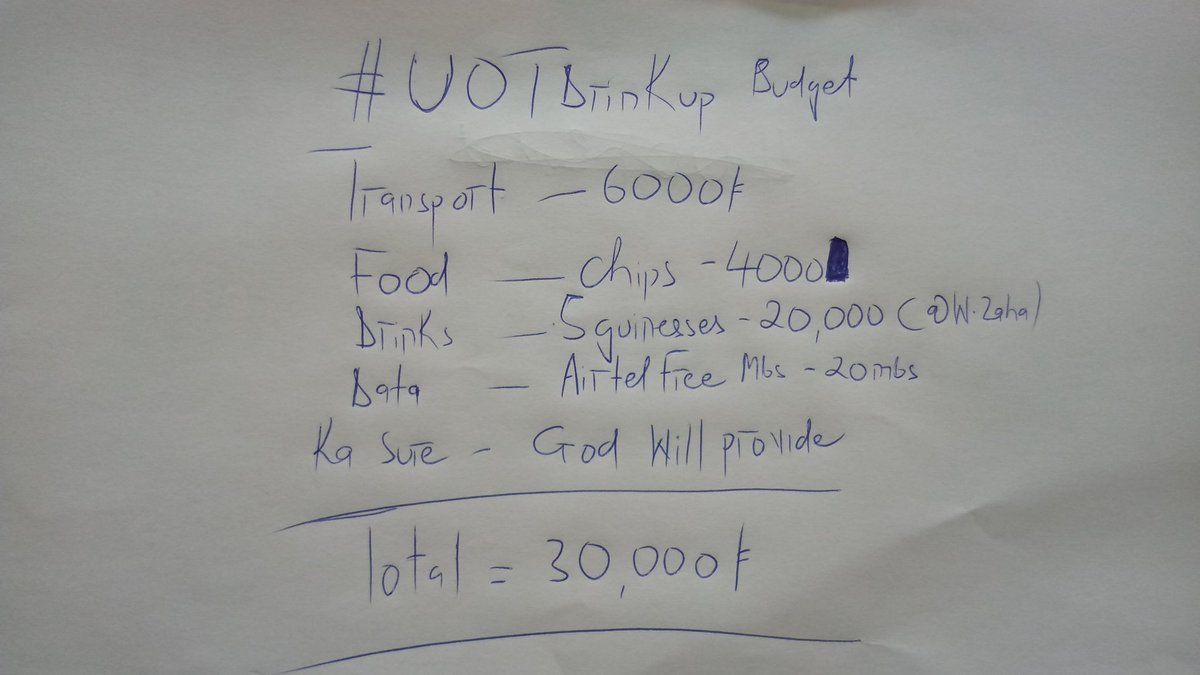 #UOTDrinkup Budget
Transport — 6000/=
Food — Chips - 4000
Drinks — 5 guinesses - 20,000 (@W.Zaha)
Data — Airtel Free Mbs - 20mbs
Ka Sure - God Will provide
Total = 30,000/=